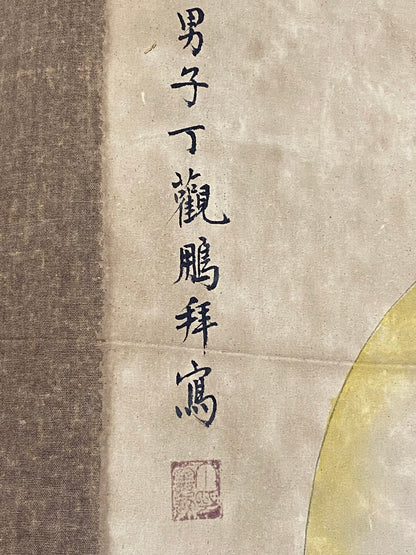 男子丁觀鵬拜寫